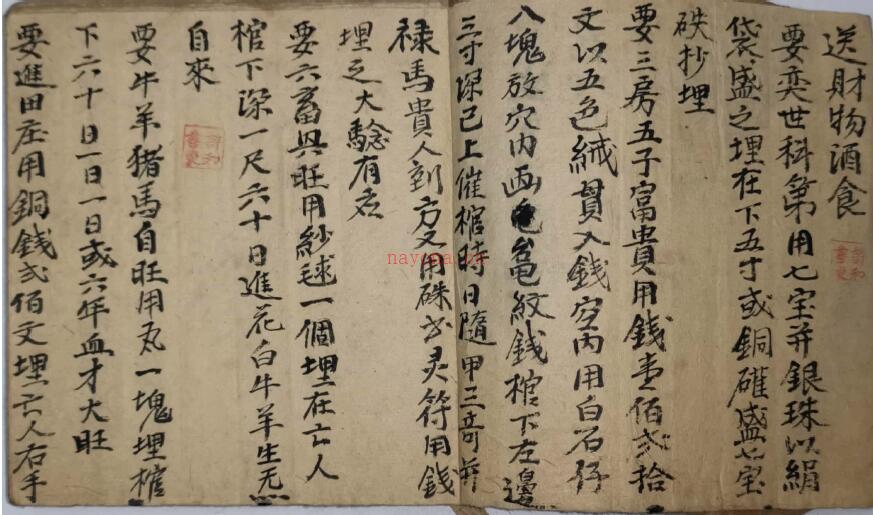 送財物酒食
要奕世科第用七宝并銀珠以絹
袋盛之埋在下五寸或銅確盛七宝
砄抄埋
要三房五子富貴用錢壹佰弍拾
文以五色絨貫入錢空内用白石仔
八塊放穴内画龟紋錢棺下左邊
三寸深已上催棺時日随甲三奇并
禄馬貴人到方又用硃书灵符用錢
埋之大驗有应
要六畜興旺用紗毬一個埋在亡人
棺下深一尺六十日進花白牛羊生炁
自來
要牛羊猪馬自旺用瓦一塊埋棺
下六十日一日一日或六年血才大旺
要進田庄用銅銭弍佰文埋亡人右手